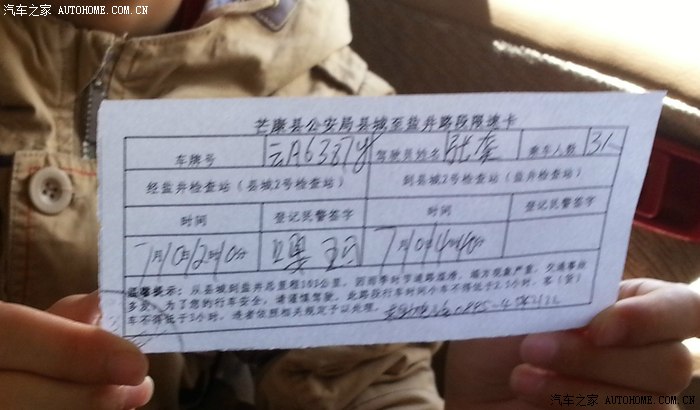 汽车之家 AUTOHOME.COM.CN
芒康县公安局县城至盐井路段限速卡
车牌号 驾驶员姓名 乘车人数 3人
经盐井检查站(县城2号检查站) 到县城2号检查站(盐井检查站)
时间 登记民警签字 时间 登记民警签字
7月10日2时40分 7月10日4时40分
温馨提示:从县城到盐井总里程103公里,因雨季时节道路湿滑,塌方现象严重,交通事故
多发,为了您的行车安全,请谨慎驾驶,此路段行车时间小车不得低于2.5小时,客(货)
车不得低于3小时,违者依照相关规定予以处理。
汽车之家 AUTOHOME.COM.CN